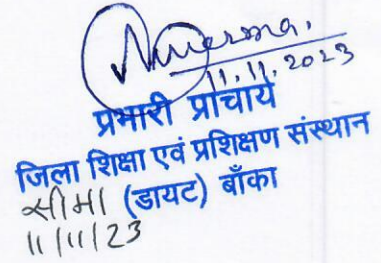 11.11.2023
प्रभारी प्राचार्य
जिला शिक्षा एवं प्रशिक्षण संस्थान
(डायट) बाँका
सीमा
11/11/23